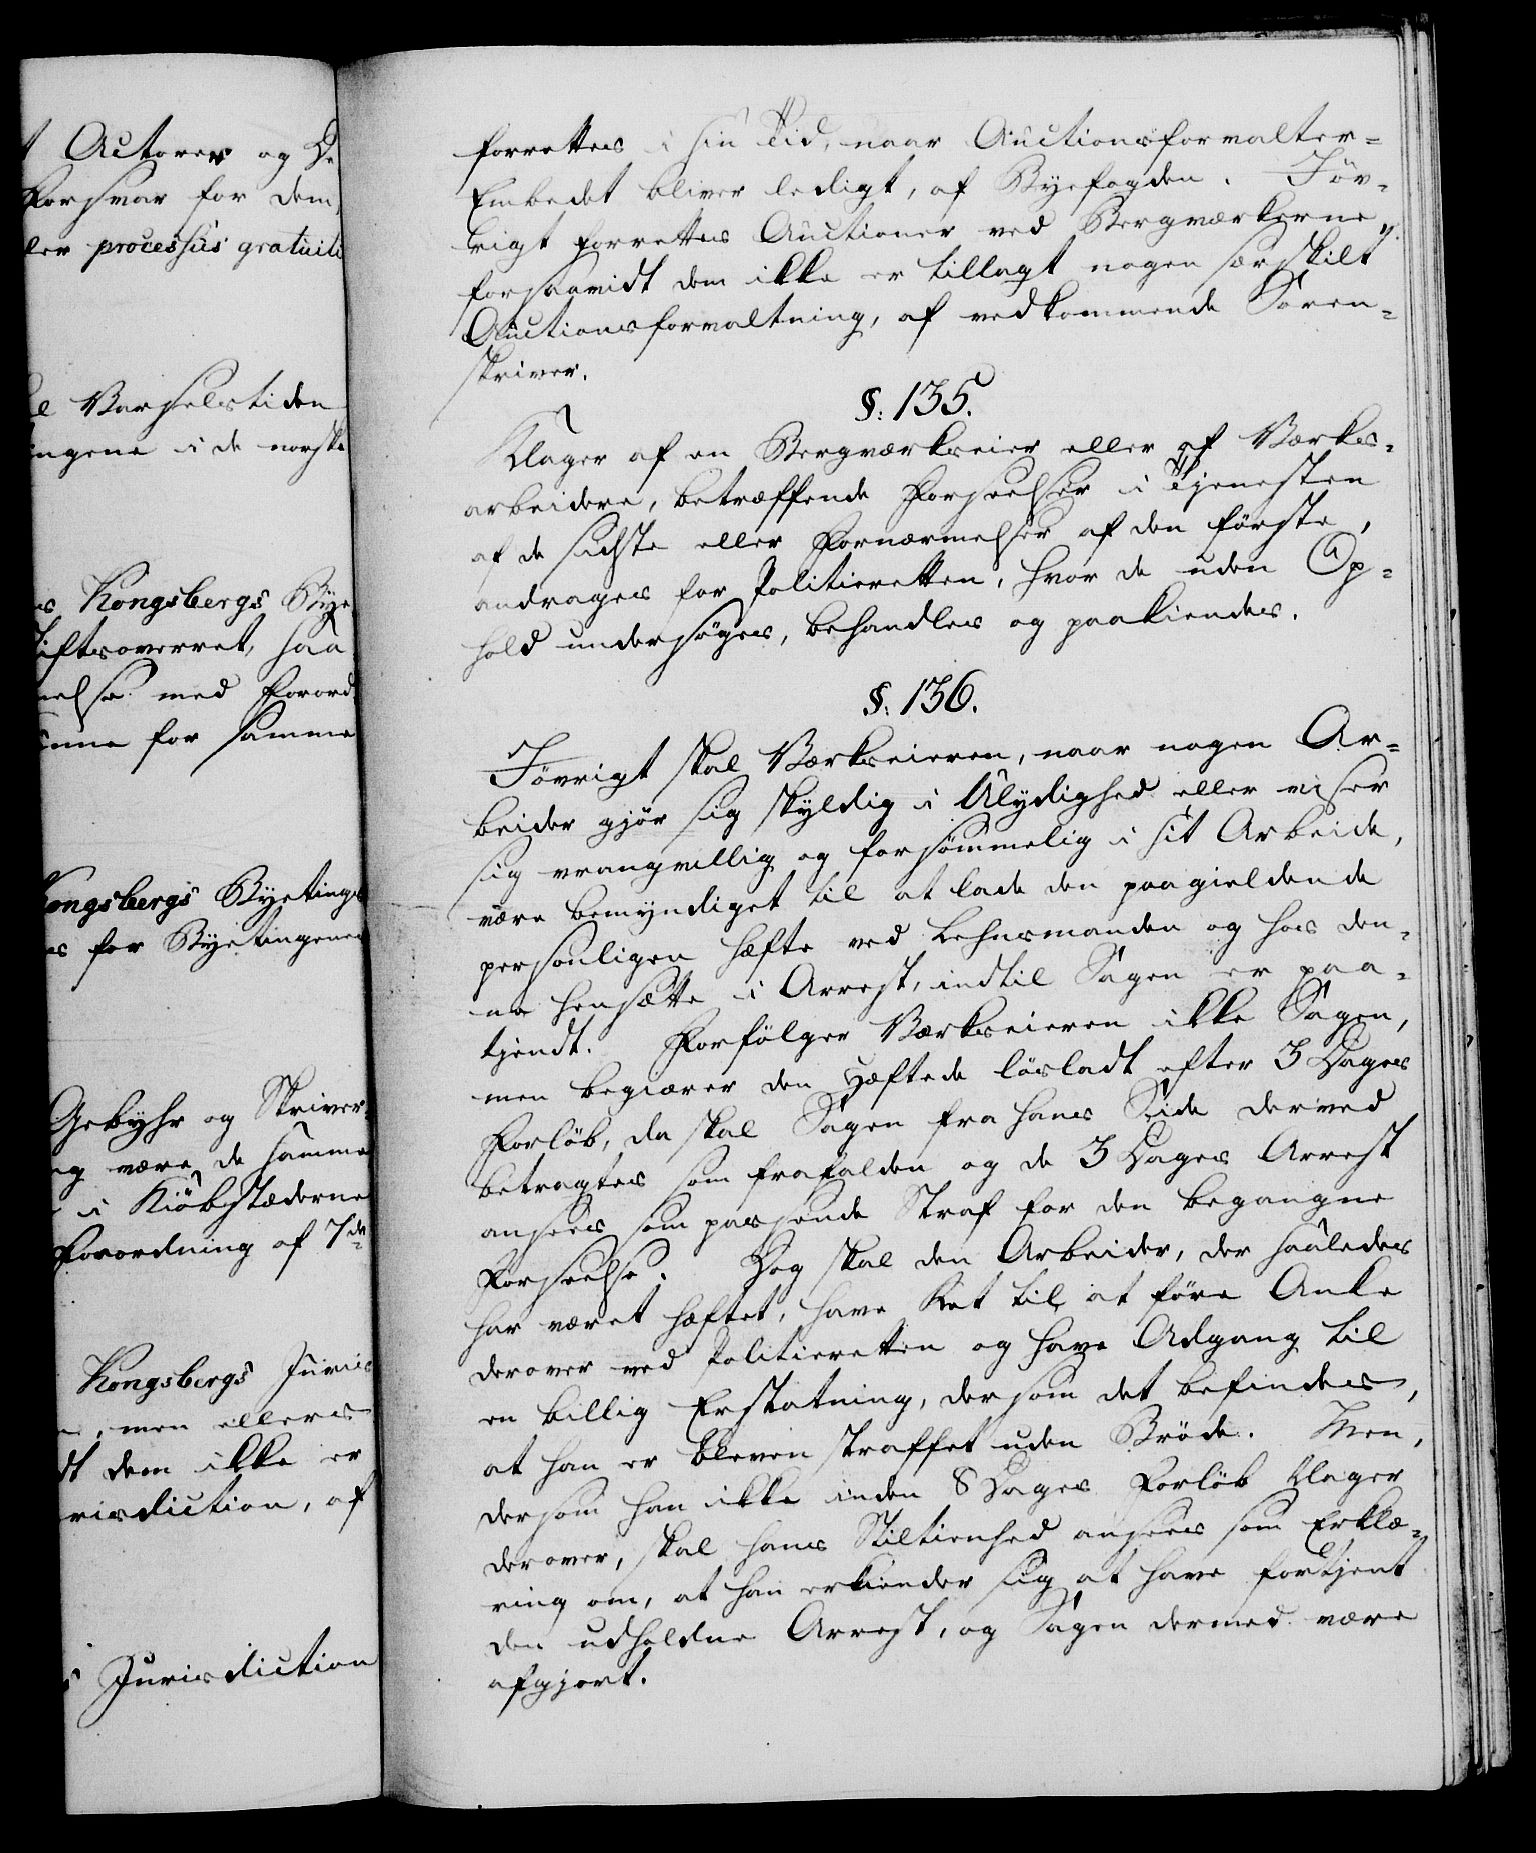 t Actorer og De
Forsvar for dem,
ler processus gratuiti
le Varselstiden
ingene i de norske
s Kongsbergs Bye
tiftsoverret, saa
else med Forord
enne for samme
Kongsbergs Byetings
s for Byetingene
Gebyhr og Skriver
ng være de samme
i Kiöbstæderne
Forordning af 7de
Kongsbergs Juris
, men ellers
dt dem ikke er
risdiction, af
s Jurisdiction
forrettes i sin Tid, naar Auctionsforvalter-
Embedet bliver ledigt, af Byefogden. Iöv-
rigt forrettes Auctioner ved Bergværkerne,
forsaavidt dem ikke er tillagt nogen særskilt
Auctionsforvaltning, af vedkommende Soren-
skriver.
§. 135.
Klager af en Bergværkseier eller af Værks-
arbeidere, betræffende Forseelser i Tjenesten
af de sidste eller Fornærmelser af den förste,
andrages for Politieretten, hvor de uden Op-
hold undersöges, behandles og paakiendes.
§. 136.
Iövrigt skal Værkseieren, naar nogen Ar-
beider gjör sig skyldig i Ulydighed eller viser
sig vrangvillig og forsömmelig i sit Arbeide,
være bemyndiget til at lade den paagieldende
personligen hæfte ved Lehnsmanden og hos den-
ne hensætte i Arrest, indtil Sagen er paa-
kjendt. Forfölger Værkseieren ikke Sagen,
men begiærer den Hæftede lösladt efter 3 Dages
Forlöb, da skal Sagen fra hans Side derved
betragtes som frafalden og de 3 Dages Arrest
ansees som passende Straf for den begangne
Forseelse. Dog skal den Arbeider, der saaledes
har været hæftet, have Ret til at före Anke
derover ved Politieretten og have Adgang til
en billig Erstatning, dersom det befindes,
at han er bleven straffet uden Bröde. Men,
dersom han ikke inden 8 Dages Forlöb klager
derover, skal hans Stiltienhed ansees som Erklæ-
ring om, at han erkiender sig at have fortjent
den udholdne Arrest, og Sagen dermed være
afgjort.